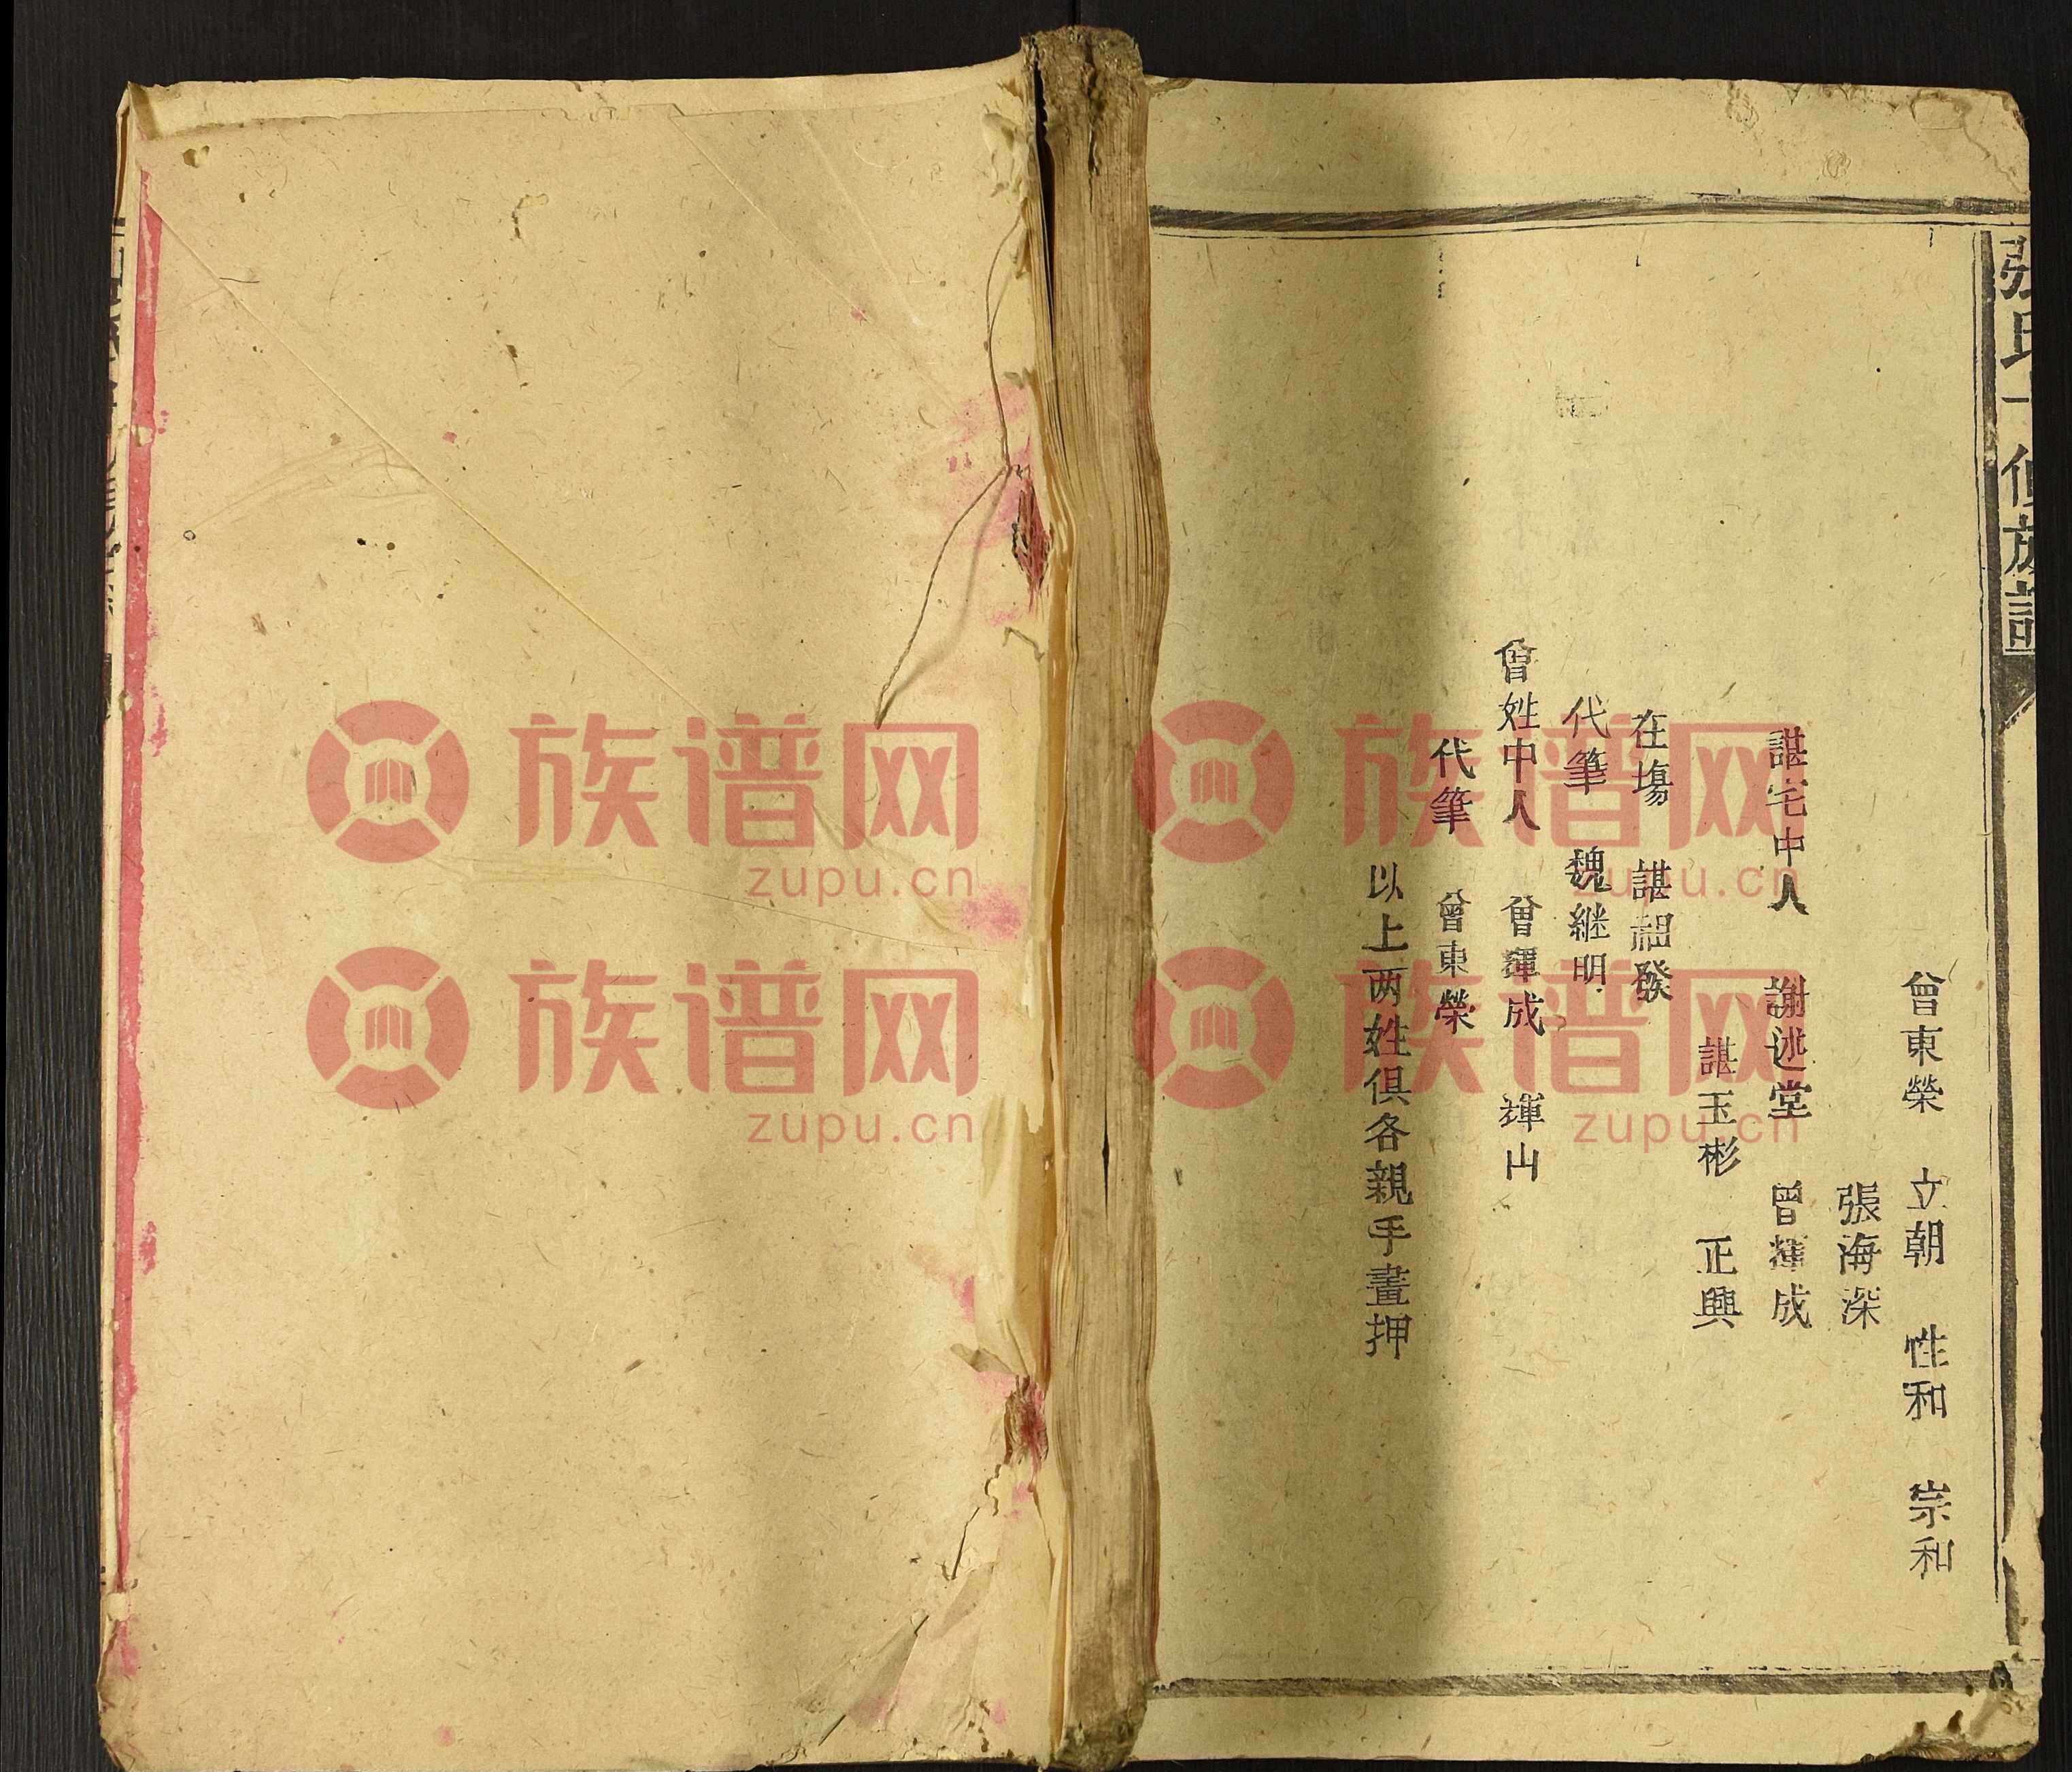 張氏十修族譜
曾東榮 立朝 性和 宗和
張海深
諶宅中人 謝述堂 曾輝成
諶玉彬 正興
在塲 諶祖發
代筆 魏継明
曾姓中人 曾輝成 輝山
代筆 曾東榮
以上两姓俱各親手畫押
族谱网
zupu.cn
族谱网
zupu.cn
族谱网
zupu.cn
族谱网
zupu.cn